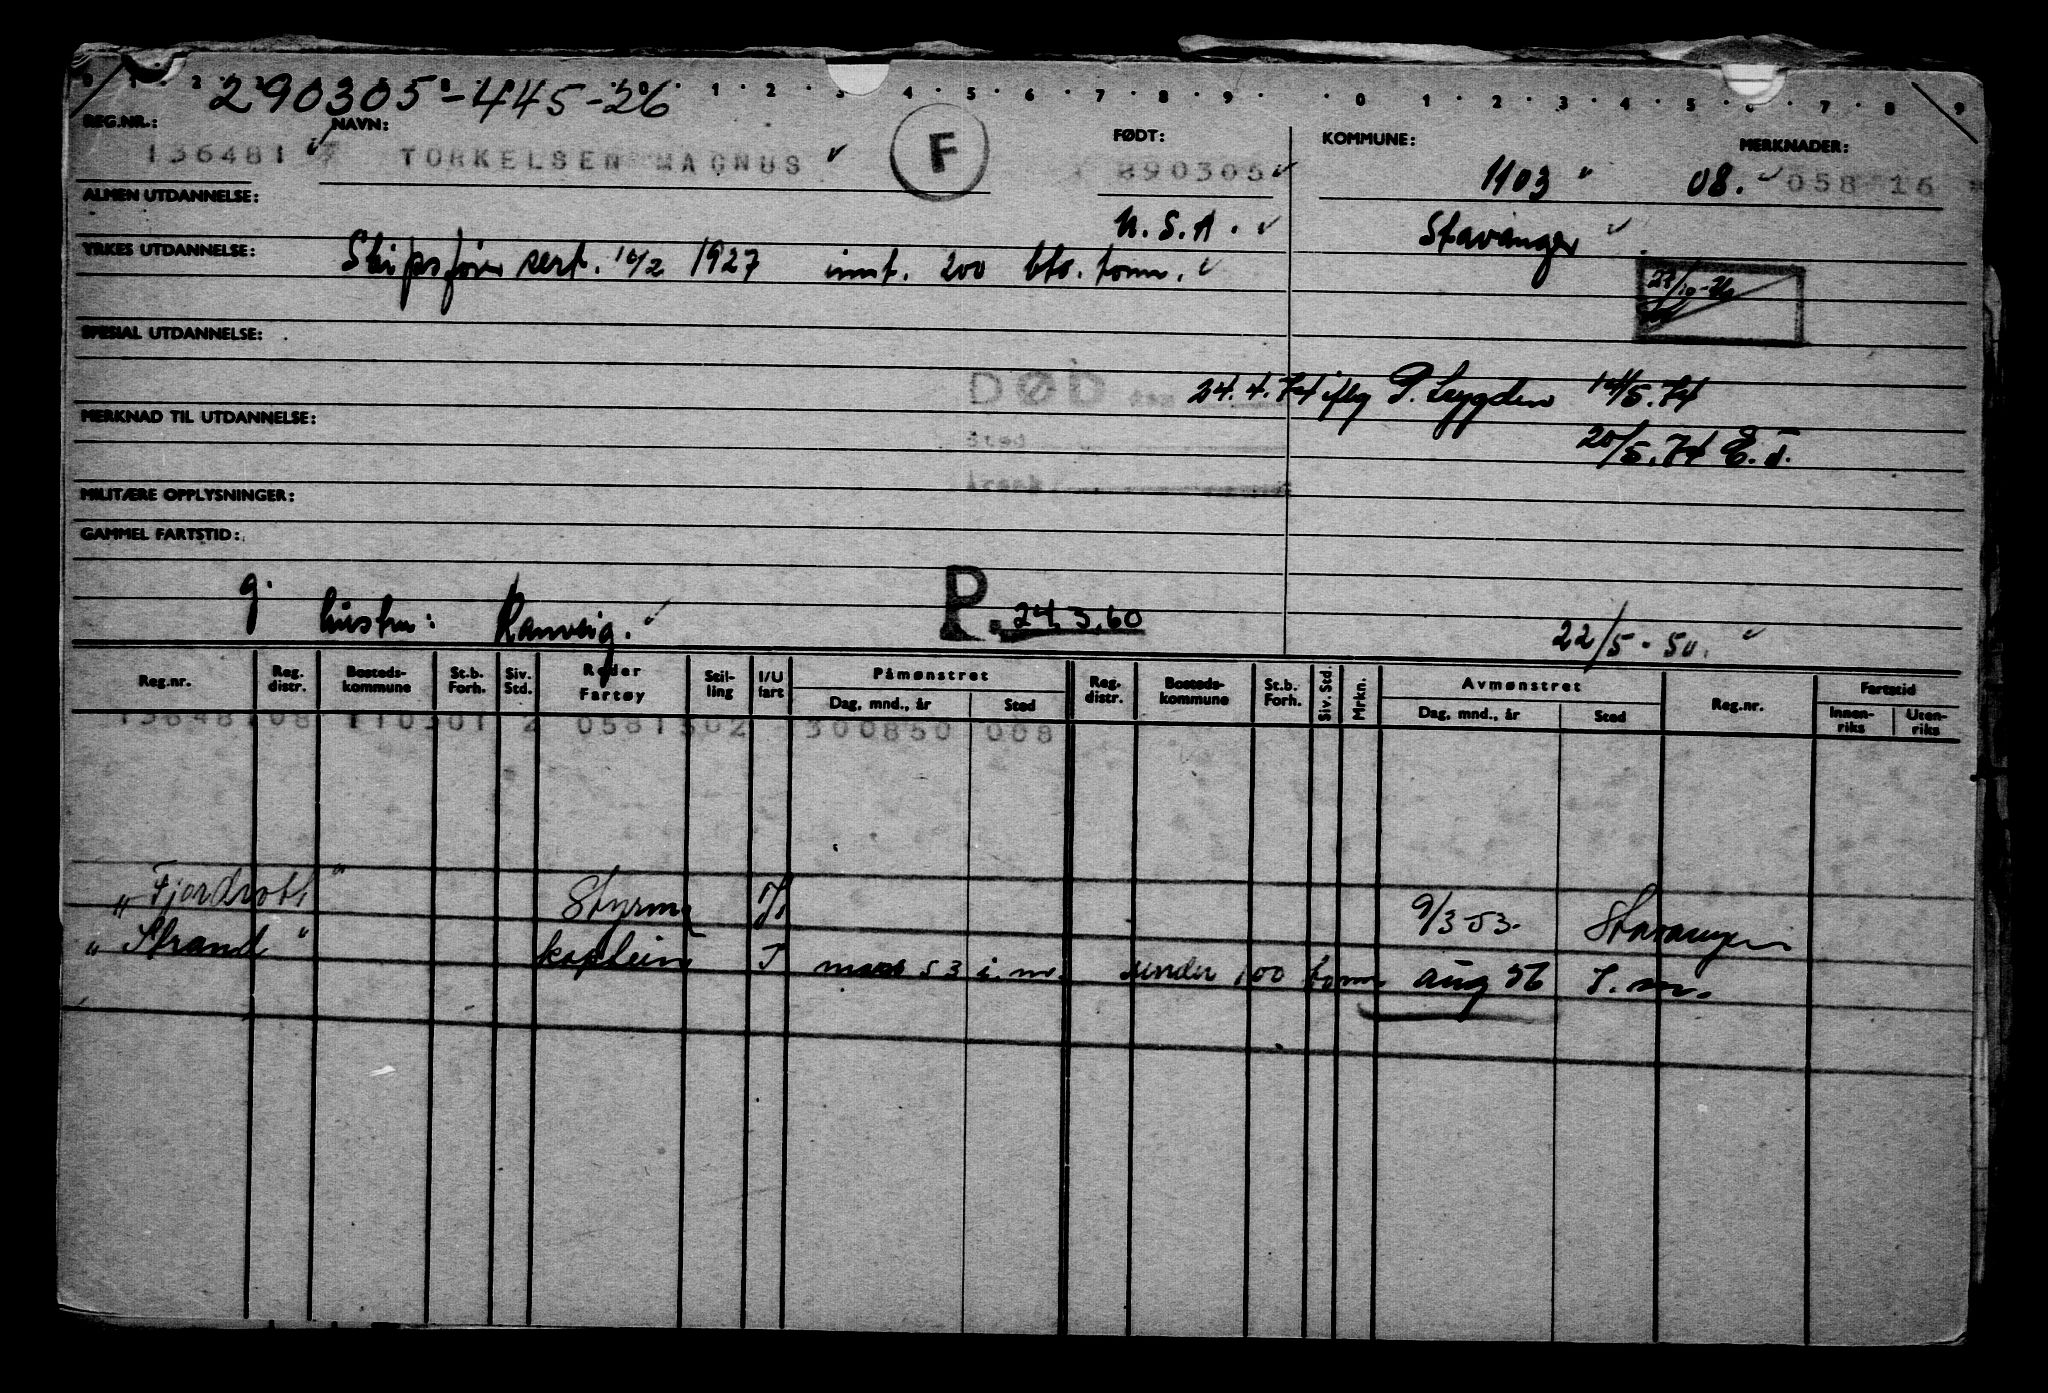 0 1 2 1 2 3 4 5 6 7 8 9 0 1 2 3 4 5 6 7 8 9
290305-445-26
REG.NR.: NAVN: FØDT: KOMMUNE: MERKNADER:
136481 7 TORKELSEN MAGNUS F 290305 1103 08. 058 16
ALMEN UTDANNELSE:
U.S.A. Stavanger
YRKES UTDANNELSE: Skipsfører sert. 10/2 1927 innt. 200 bto. tonn.
SPESIAL UTDANNELSE:
DØD den 24.4.74 iflg 14/5.74
MERKNAD TIL UTDANNELSE:
Sted 20/5.74 E.T.
Årsak
MILITÆRE OPPLYSNINGER:
GAMMEL FARTSTID:
g. hustru: Ranveig. P. 24.3.60 22/5-50.
Reg.nr. Reg. distr. Bosteds-kommune St.b. Forh. Siv. Std. Reder Fartøy Stil-ling I/U fart Påmønstret Reg. distr. Bosteds-kommune St.b. Forh. Siv. Std. Mrkn. Avmønstret Reg.nr. Fartstid
Dag, mnd., år Sted Dag, mnd., år Sted Innen-riks Uten-riks
136481 08 110301 2 0581502 300850 008
"Fjordrott" Styrm 9/3 53. Stavanger
"Strand" kaptein I mars 53 i.m. under 100 tonn aug 56 I.m.